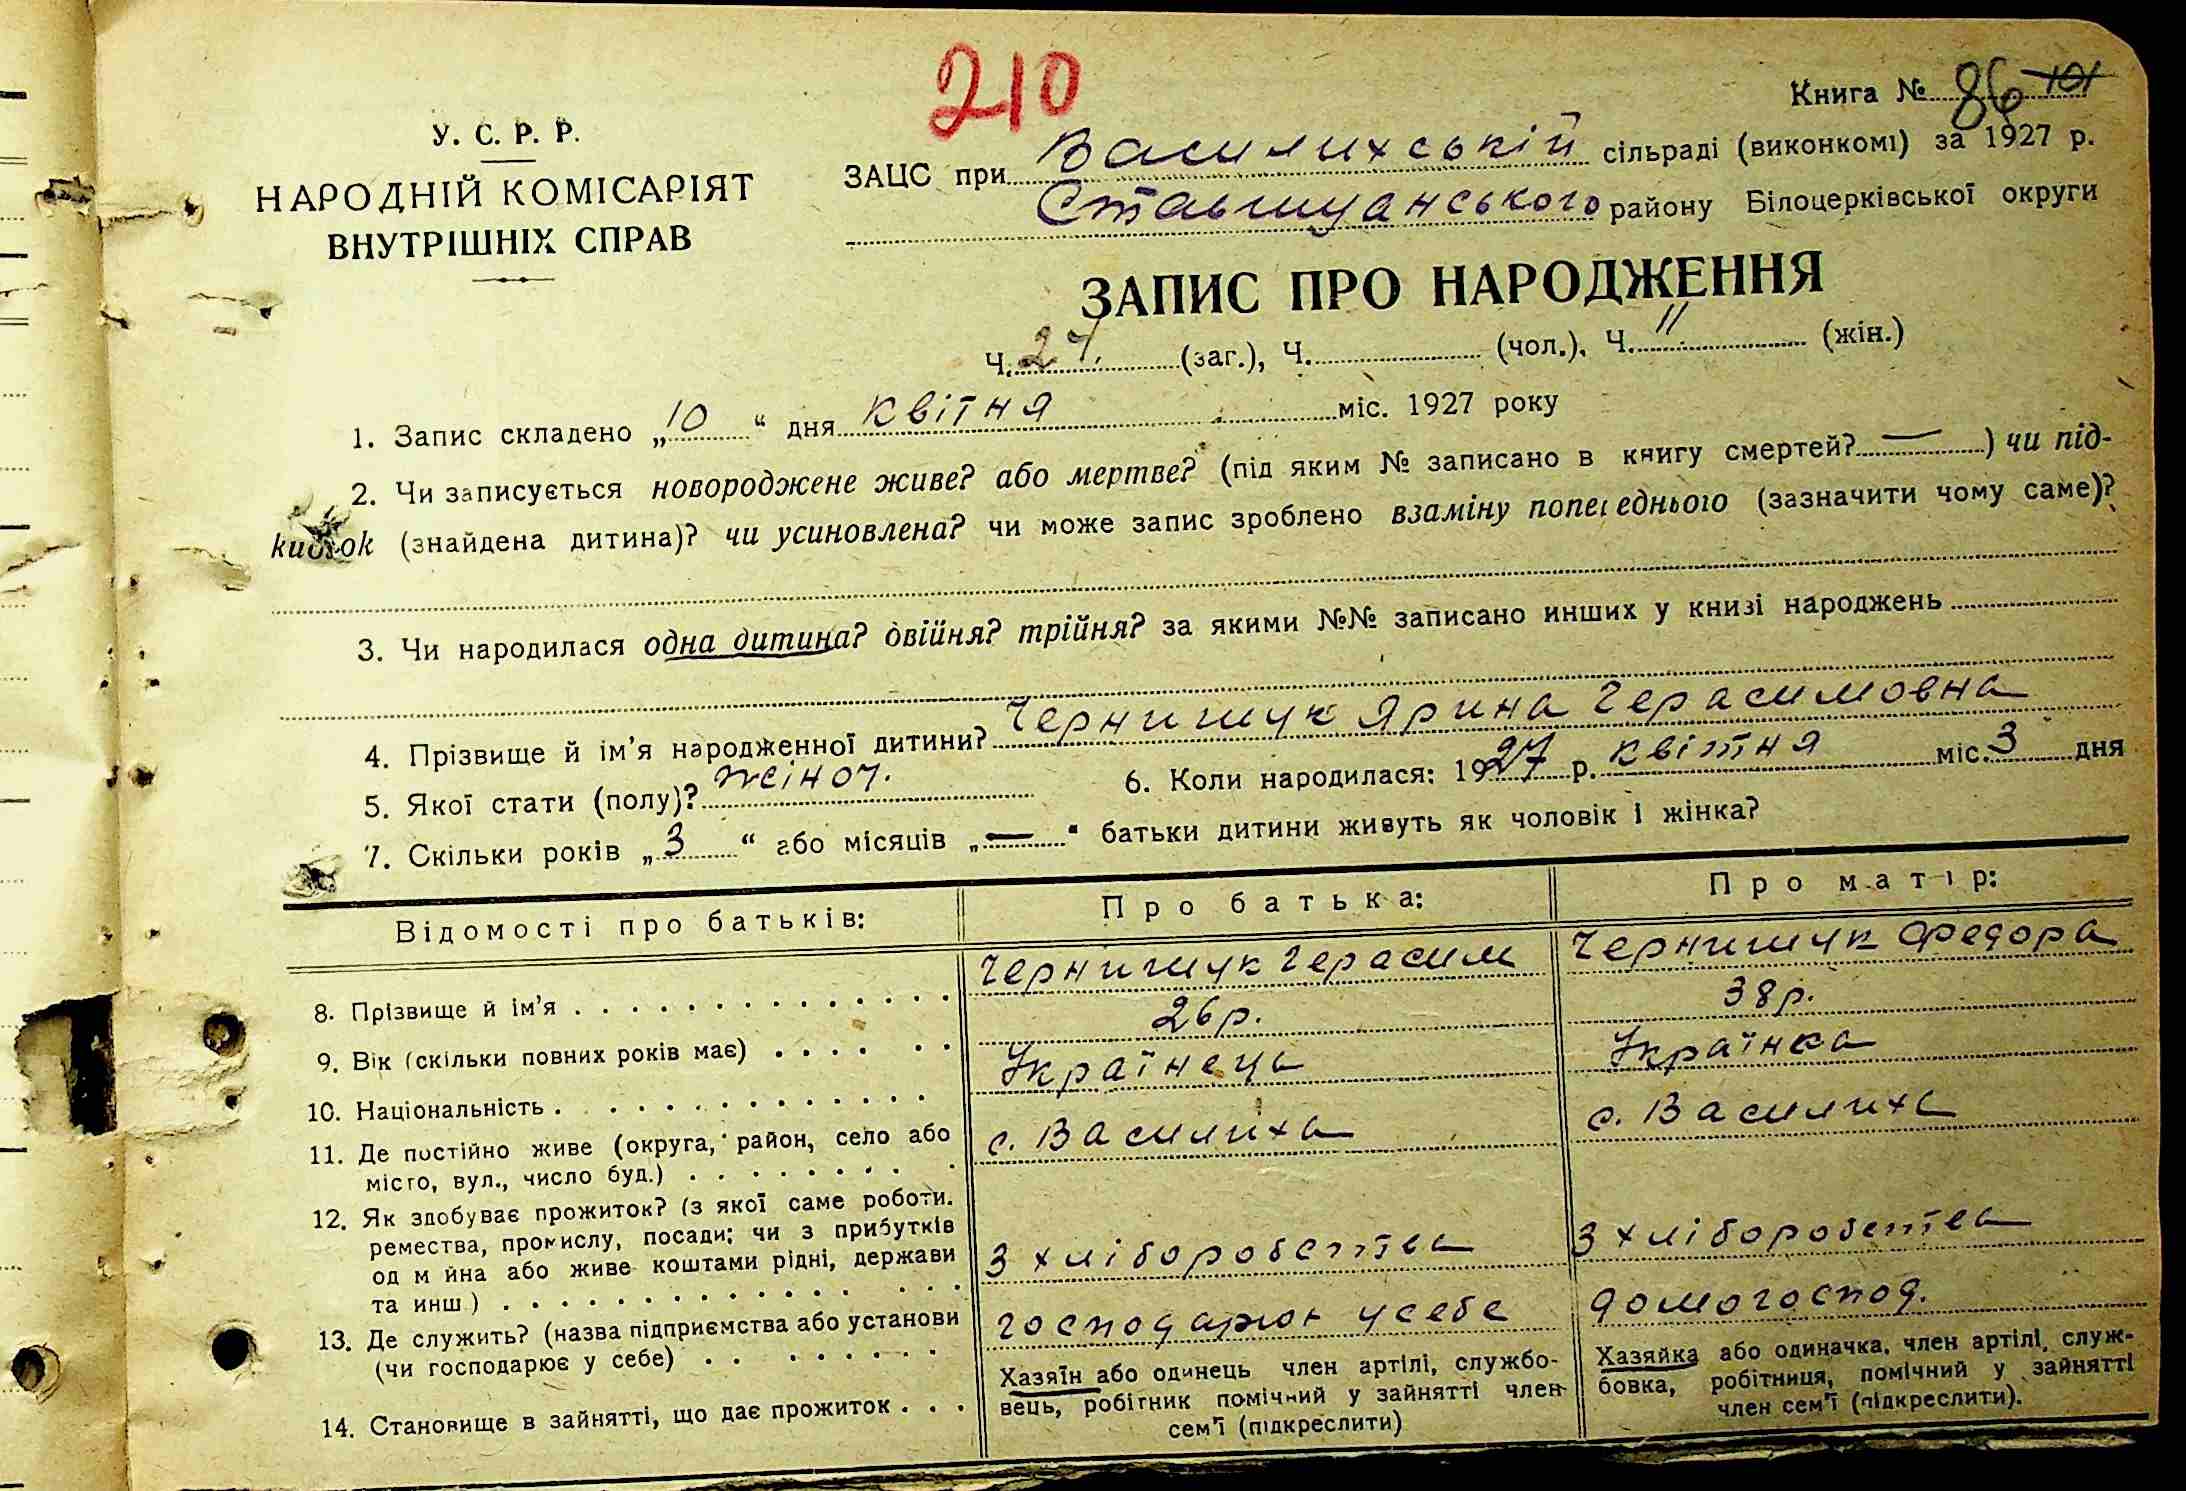 210
Книга № 86 101
У. С. Р. Р.
НАРОДНІЙ КОМІСАРІЯТ
ВНУТРІШНІХ СПРАВ
ЗАЦС при Василихській сільраді (виконкомі) за 1927 р.
Ставищанського району Білоцерківської округи
ЗАПИС ПРО НАРОДЖЕННЯ
Ч. 27. (заг.), Ч. (чол.), Ч. 11. (жін.)
1. Запис складено „10“ дня квітня міс. 1927 року
2. Чи записується новороджене живе? або мертве? (під яким № записано в книгу смертей? —) чи під-
кидок (знайдена дитина)? чи усиновлена? чи може запис зроблено взаміну попереднього (зазначити чому саме)?
3. Чи народилася одна дитина? двійня? трійня? за якими №№ записано инших у книзі народжень
4. Прізвище й ім’я народженної дитини? Чернишук Ярина Герасимовна
5. Якої стати (полу)? жіноч. 6. Коли народилася: 1927 р. квітня міс. 3 дня
7. Скільки років „3“ або місяців „—“ батьки дитини живуть як чоловік і жінка?
Відомості про батьків: Про батька: Про матір:
8. Прізвище й ім’я Чернишук Герасим Чернишук Федора
9. Вік (скільки повних років має) 26 р. 38 р.
10. Національність Українець Українка
11. Де постійно живе (округа, район, село або
місто, вул., число буд.) с. Василиха с. Василиха
12. Як здобуває прожиток? (з якої саме роботи.
ремества, промислу, посади; чи з прибутків
од м йна або живе коштами рідні, держави
та инш.) З хліборобства З хліборобства
13. Де служить? (назва підприємства або установи
(чи господарює у себе) господарює у себе домогоспод.
14. Становище в зайнятті, що дає прожиток
Хазяїн або одинець член артілі, службо-
вець, робітник помічний у зайнятті член
сем’ї (підкреслити)
Хазяйка або одиначка, член артілі, служ-
бовка, робітниця, помічний у зайнятті
член сем’ї (підкреслити).